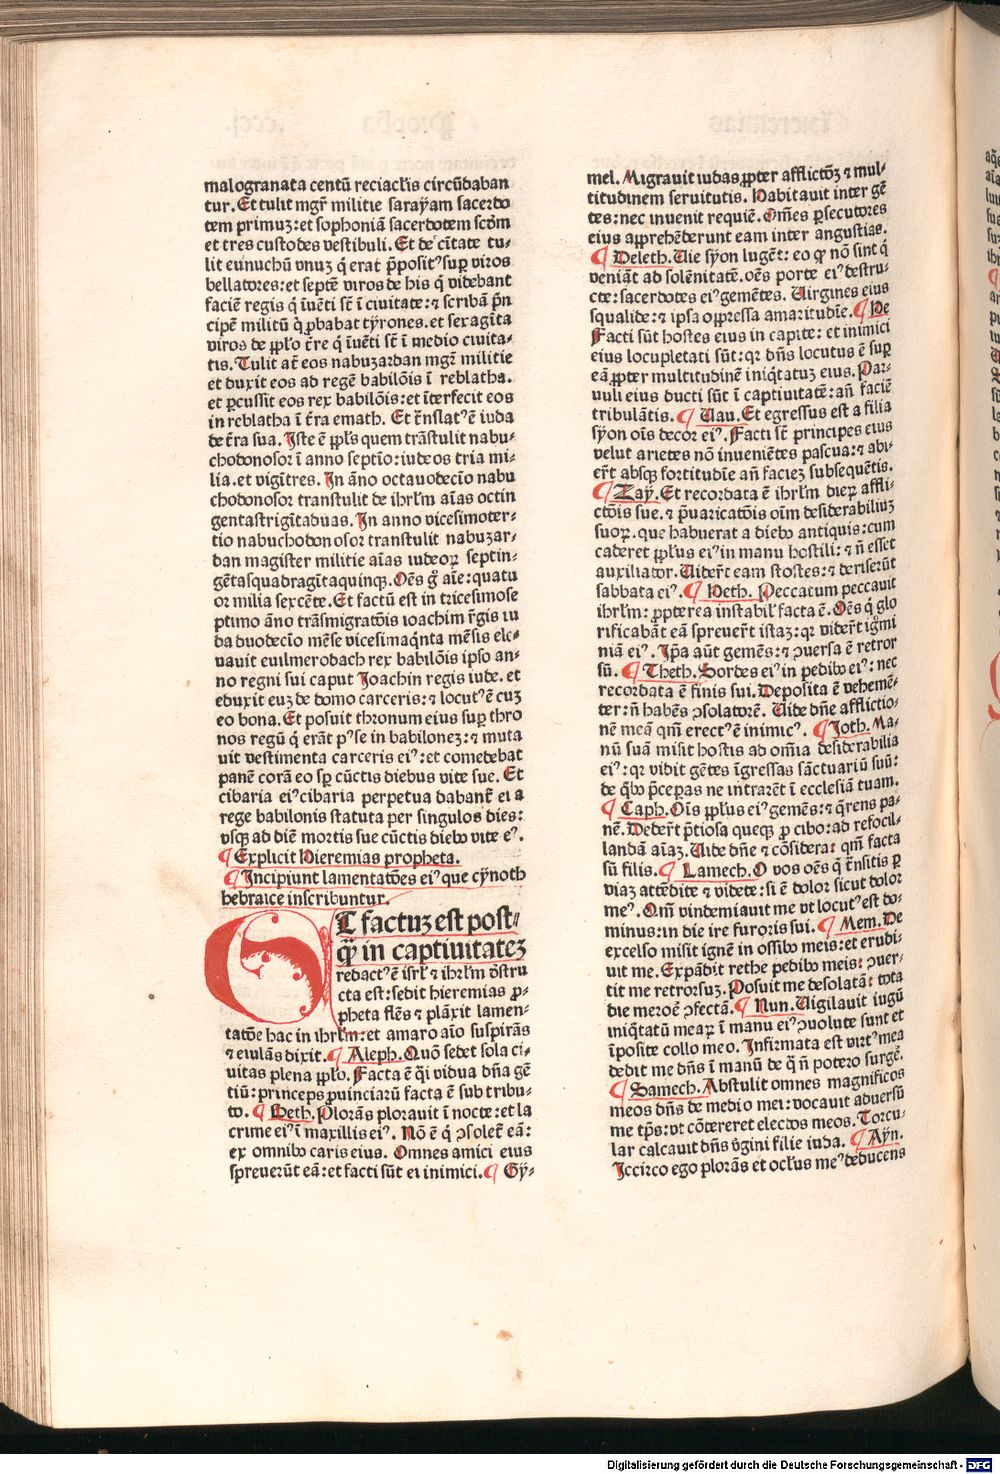 malogranata centū reciaclis circūdaban
tur. Et tulit mgr̄ militie sarayam sacerdo
tem primuz: et sophoniā sacerdotem scōm
et tres custodes vestibuli. Et de cītate tu⸗
lit eunuchū vnuz q̇ erat p̄posit⁹ suꝑ viros
bellatores: et septē viros de his q̇ videbant
faciē regis q̇ īuēti st̄ ī ciuitate: ⁊ scribā pn̄
cipē militū q̇ ꝓbabat tyrones. et sexagīta
viros de ꝓplo t̄re q̇ īuēti st̄ ī medio ciuita⸗
tis. Tulit at̄ eos nabuzardan mgr̄ militie
et duxit eos ad regē babilōis ī reblatha.
et ꝑcussit eos rex babilōis: et īterfecit eos
in reblatha ī t̄ra emath. Et t̄nslat⁹ ē iuda
de t̄ra sua. Iste ē ꝓpls quem trāstulit nabu⸗
chodonosor ī anno septīo: iudeos tria mi⸗
lia. et vigītres. In āno octauodecīo nabu
chodonosor transtulit de ihrlm aīas octin
gentastrigītaduas. In anno vicesimoter⸗
tio nabuchodonosor transtulit nabuzar⸗
dan magister militie aīas iudeoꝝ septin⸗
gētasquadragītaquinqꝫ. Oēs g̊ aīe: quatu
or milia sexcēte. Et factū est in tricesimose
ptimo āno trāsmigratōis ioachim r̄gis iu
da duodecīo mēse vicesimaq̄nta mēsis ele⸗
uauit euilmerodach rex babilōis ipso an⸗
no regni sui caput Joachin regis iude. et
eduxit euz de domo carceris: ⁊ locut⁹ ē cuz
eo bona. Et posuit thronum eius suꝑ thro
nos regū q̇ erāt p⁹ se in babilonez: ⁊ muta
uit vestimenta carceris ei⁹: et comedebat
panē corā eo sꝑ cūctis diebus vite sue. Et
cibaria ei⁹ cibaria perpetua dabant̄ ei a
rege babilonis statuta per singulos dies:
vsqꝫ ad diē mortis sue cūctis diebꝰ vite e⁹.
¶ Explicit Hieremias propheta.
¶ Incipiunt lamentatōes ei⁹ que cynoth
hebraice inscribuntur.
ET factuz est post⸗
q̄ꝫ in captiuitatez
redact⁹ ē isrl ⁊ ihrlm dstru
cta est: sedit hieremias ꝓ⸗
pheta flēs ⁊ plāxit lamen⸗
tatōe hac in ihrlm: et amaro aīo suspirās
⁊ eiulās dixit. ¶ Aleph. Quō sedet sola ci⸗
uitas plena ꝓplo. Facta ē q̇i vidua dn̄a gē
tiū: princeps ꝓuinciarū facta ē sub tribu⸗
to. ¶ Beth. Plorās plorauit ī nocte: et la
crime ei⁹ ī maxillis ei⁹. Nō ē q̇ ꝯsolet̄ eā:
ex omnibꝰ caris eius. Omnes amici eius
spreuerūt eā: et facti sūt ei inimici. ¶ Gy⸗
mel. Migrauit iudas ꝓpter afflictōz ⁊ mul⸗
titudinem seruitutis. Habitauit inter gē
tes: nec inuenit requiē. Om̄es ꝑsecutores
eius apprehēderunt eam inter angustias.
¶ Deleth. Uie syon lugēt: eo ꝙ nō sint q̇
veniāt ad solēnitatē. oēs porte ei⁹ destru⸗
cte: sacerdotes ei⁹ gemētes. Uirgines eius
squalide: ⁊ ipsa oppressa amaritudīe. ¶ He
Facti sūt hostes eius in capite: et inimici
eius locupletati sūt: qꝛ dn̄s locutus ē suꝑ
eā ꝓpter multitudinē iniq̇tatuz eius. Par⸗
uuli eius ducti sūt ī captiuitatē: an̄ faciē
tribulātis. ¶ Uau. Et egressus est a filia
syon oīs decor ei⁹. Facti st̄ principes eius
velut arietes nō inueniētes pascua: ⁊ abi⸗
er̄t absqꝫ fortitudīe an̄ faciez subsequētis.
¶ Zay. Et recordata ē ihrlm dieꝝ affli⸗
ctōis sue. ⁊ p̄uaricatōis oīm desiderabiliuz
suoꝝ. que habuerat a diebꝰ antiquis: cum
caderet ꝓplus ei⁹ in manu hostili: ⁊ n̄ esset
auxiliator. Uider̄t eam hostes: ⁊ deriserūt
sabbata ei⁹. ¶ Heth. Peccatum peccauit
ihrlm: ꝓpterea instabil' facta ē. Oēs q̇ glo
rificabāt eā spreuer̄t istaz: qꝛ vider̄t ig̊mi
niā ei⁹. Ip̄a aūt gemēs: ⁊ ꝯuersa ē retror
sū. ¶ Theth. Sordes ei⁹ in pedibꝰ ei⁹: nec
recordata ē finis sui. Deposita ē vehemē⸗
ter: n̄ habēs ꝯsolatorē. Uide dn̄e afflictio⸗
nē meā qm̄ erect⁹ ē inimic⁹. ¶ Joth. Ma⸗
nū suā misit hostis ad om̄ia desiderabilia
ei⁹: qꝛ vidit gētes īgressas sāctuariū suū:
de q̇bꝰ p̄ceperas ne intrarēt ī ecclesiā tuam.
¶ Caph. Oīs ꝓplus ei⁹ gemēs: ⁊ q̄rens pa⸗
nē. Deder̄t p̄tiosa queqꝫ ꝓ cibo: ad refocil⸗
landā aīaz. Uide dn̄e ⁊ cōsidera: qm̄ facta
sū filis. ¶ Lamech. O vos oēs q̇ t̄nsitis ꝑ
viaz attēdite ⁊ videte: si ē dolor sicut dolor
me⁹. Qm̄ vindemiauit me vt locut⁹ est do⸗
minus: in die ire furoris sui. ¶ Mem. De
excelso misit ignē in ossibꝰ meis: et erudi⸗
uit me. Expādit rethe pedibꝰ meis: ꝯuer⸗
tit me retrorsuz. Posuit me desolatā: tota
die meroē ꝯfectā. ¶ Nun. Uigilauit iugū
iniq̇tatū meaꝝ ī manu ei⁹ ꝯuolute sunt et
īposite collo meo. Infirmata est virt⁹ mea
dedit me dn̄s ī manū de q̇ n̄ potero surgē.
¶ Samech. Abstulit omnes magnificos
meos dn̄s de medio mei: vocauit aduersū
me tp̄s: vt cōtereret electos meos. Torcu⸗
lar calcauit dn̄s v̇gini filie iuda. ¶ Ayn.
Iccirco ego plorās et oclus me⁹ deducens
Digitalisierung gefördert durch die Deutsche Forschungsgemeinschaft - DFG